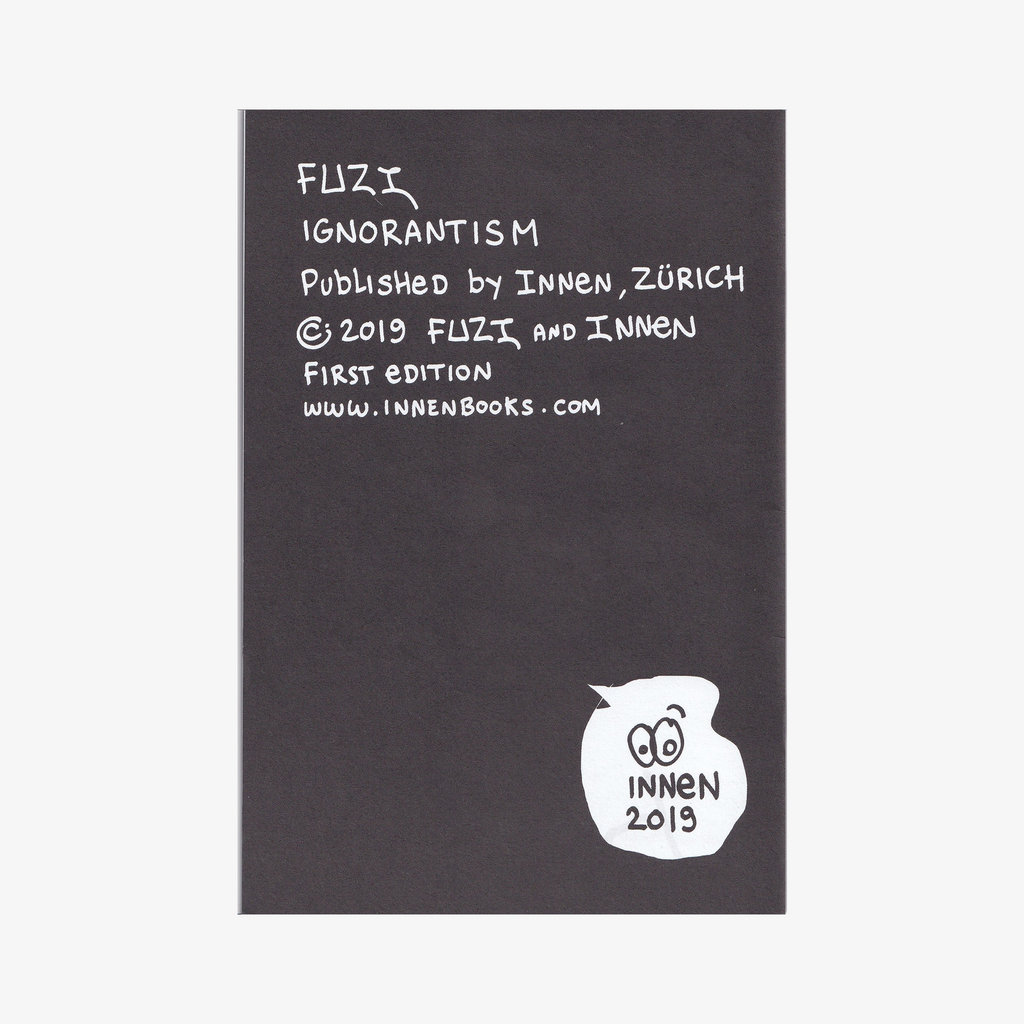 FUZI
IGNORANTISM
PubLiSHeD by INNeN, ZÜRICH
© 2019 FUZI AND INNeN
FIRST eDITION
WWW.INNENBOOKS.COM
INNeN
2019